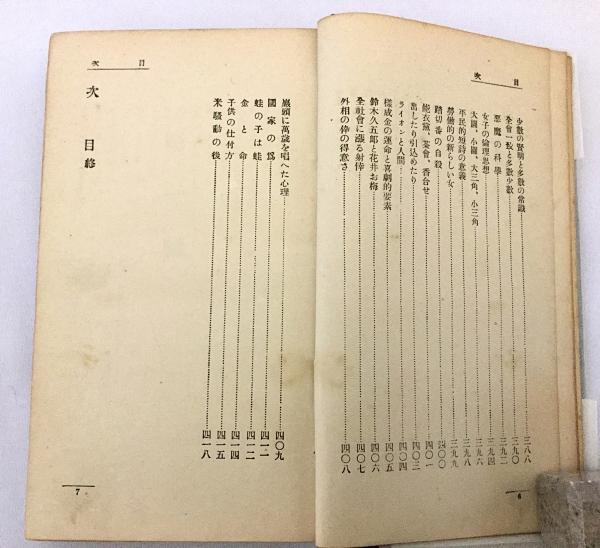 目次
少數の賢明と多數の常識……三八八
全會一致と多數少數……三九〇
惡魔の科學……三九二
女子の倫理思想……三九四
大圓、小圓、大三角、小三角……三九六
平民的短詩の意義……三九八
勞働的の新らしい女……三九九
踏切番の自殺……四〇〇
茶會、香合せ……四〇一
出したり引込めたり……四〇三
ライオンと人間……四〇四
成金の運命と喜劇的要素……四〇五
鈴木久五郎と花井お梅……四〇六
全社會に漲る射倖……四〇七
外相の倅の得意さ……四〇八
6
目次
巖頭に萬歲を唱へた心理……四〇九
國家の爲……四一一
蛙の子は蛙……四一二
金と命……四一四
子供の仕付方……四一五
米騷動の後……四一八
目次終
7